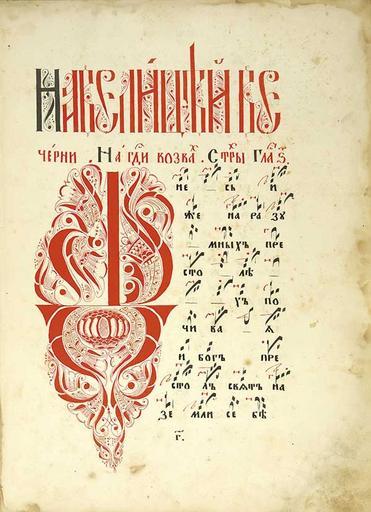 На вели́цѣй ве
че́рни . На гд҇и возва̾ . Ст҇ры Гла̾ ѕ҃.
Д не сь и
же на ра зу
мныхъ пре
сто лѣ
хъ по
чи ва я
и богъ пре
сто лъ святъ на
зе мли се бѣ
г҃.